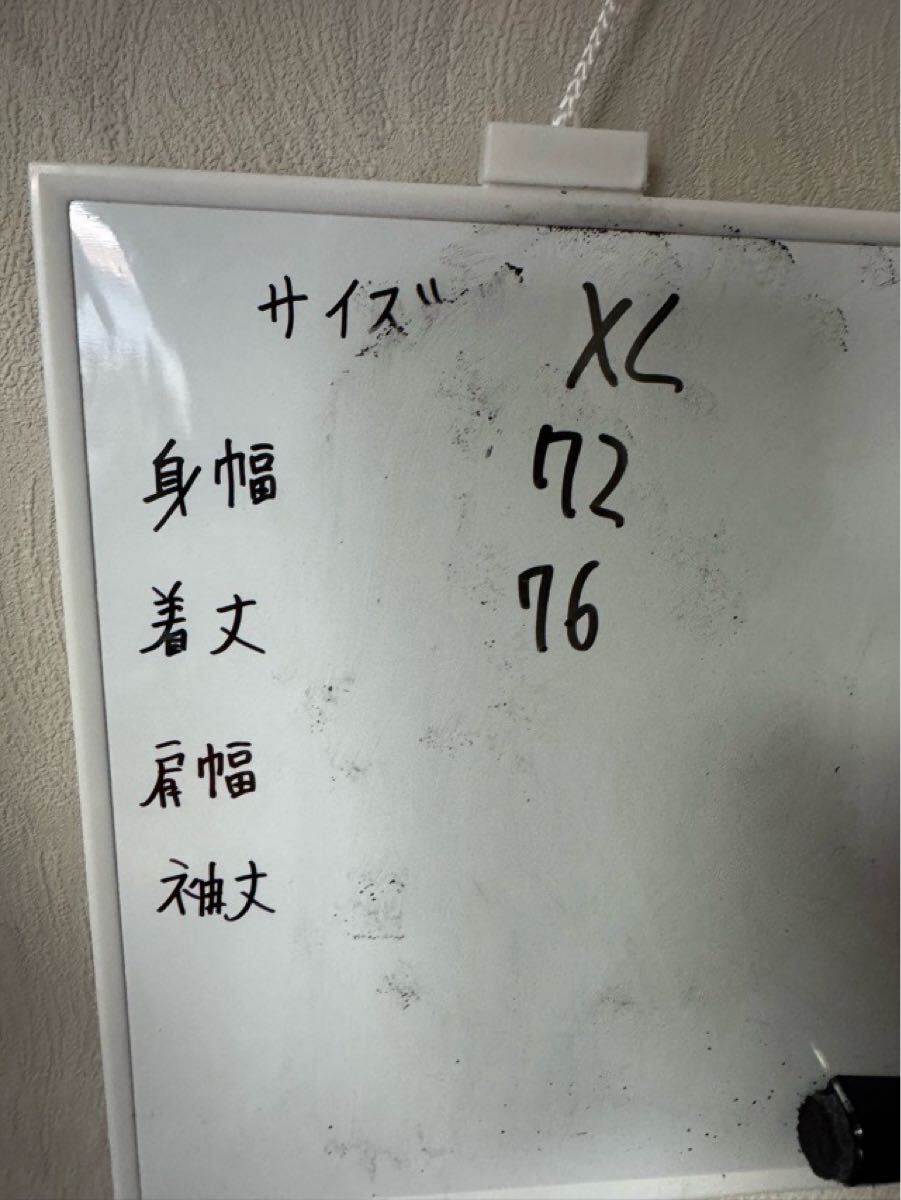 サイズ XL
身幅 72
着丈 76
肩幅
袖丈